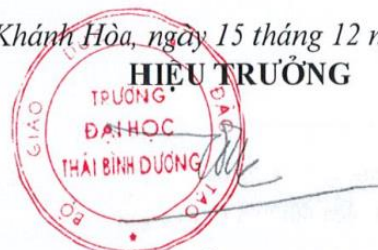 Khánh Hòa, ngày 15 tháng 12 n
HIỆU TRƯỞNG
BỘ GIÁO DỤC ĐÀO TẠO
TRƯỜNG
ĐẠI HỌC
THÁI BÌNH DƯƠNG